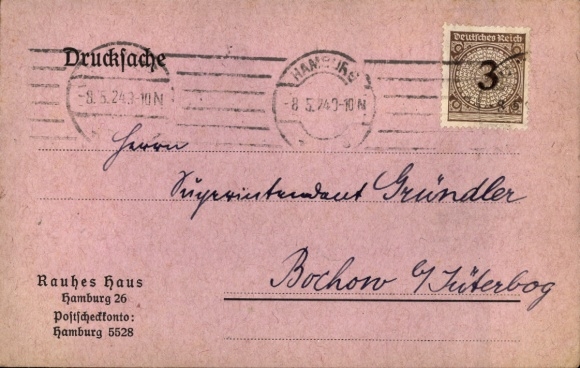 Drucksache
Deutsches Reich
3
HAMBURG
-8.5.24 9-10 N
-8.5.24 9-10 N
Herrn
Superintendent Gründler
Bochow b/Jüterbog
Rauhes Haus
Hamburg 26
Postscheckkonto:
Hamburg 5528